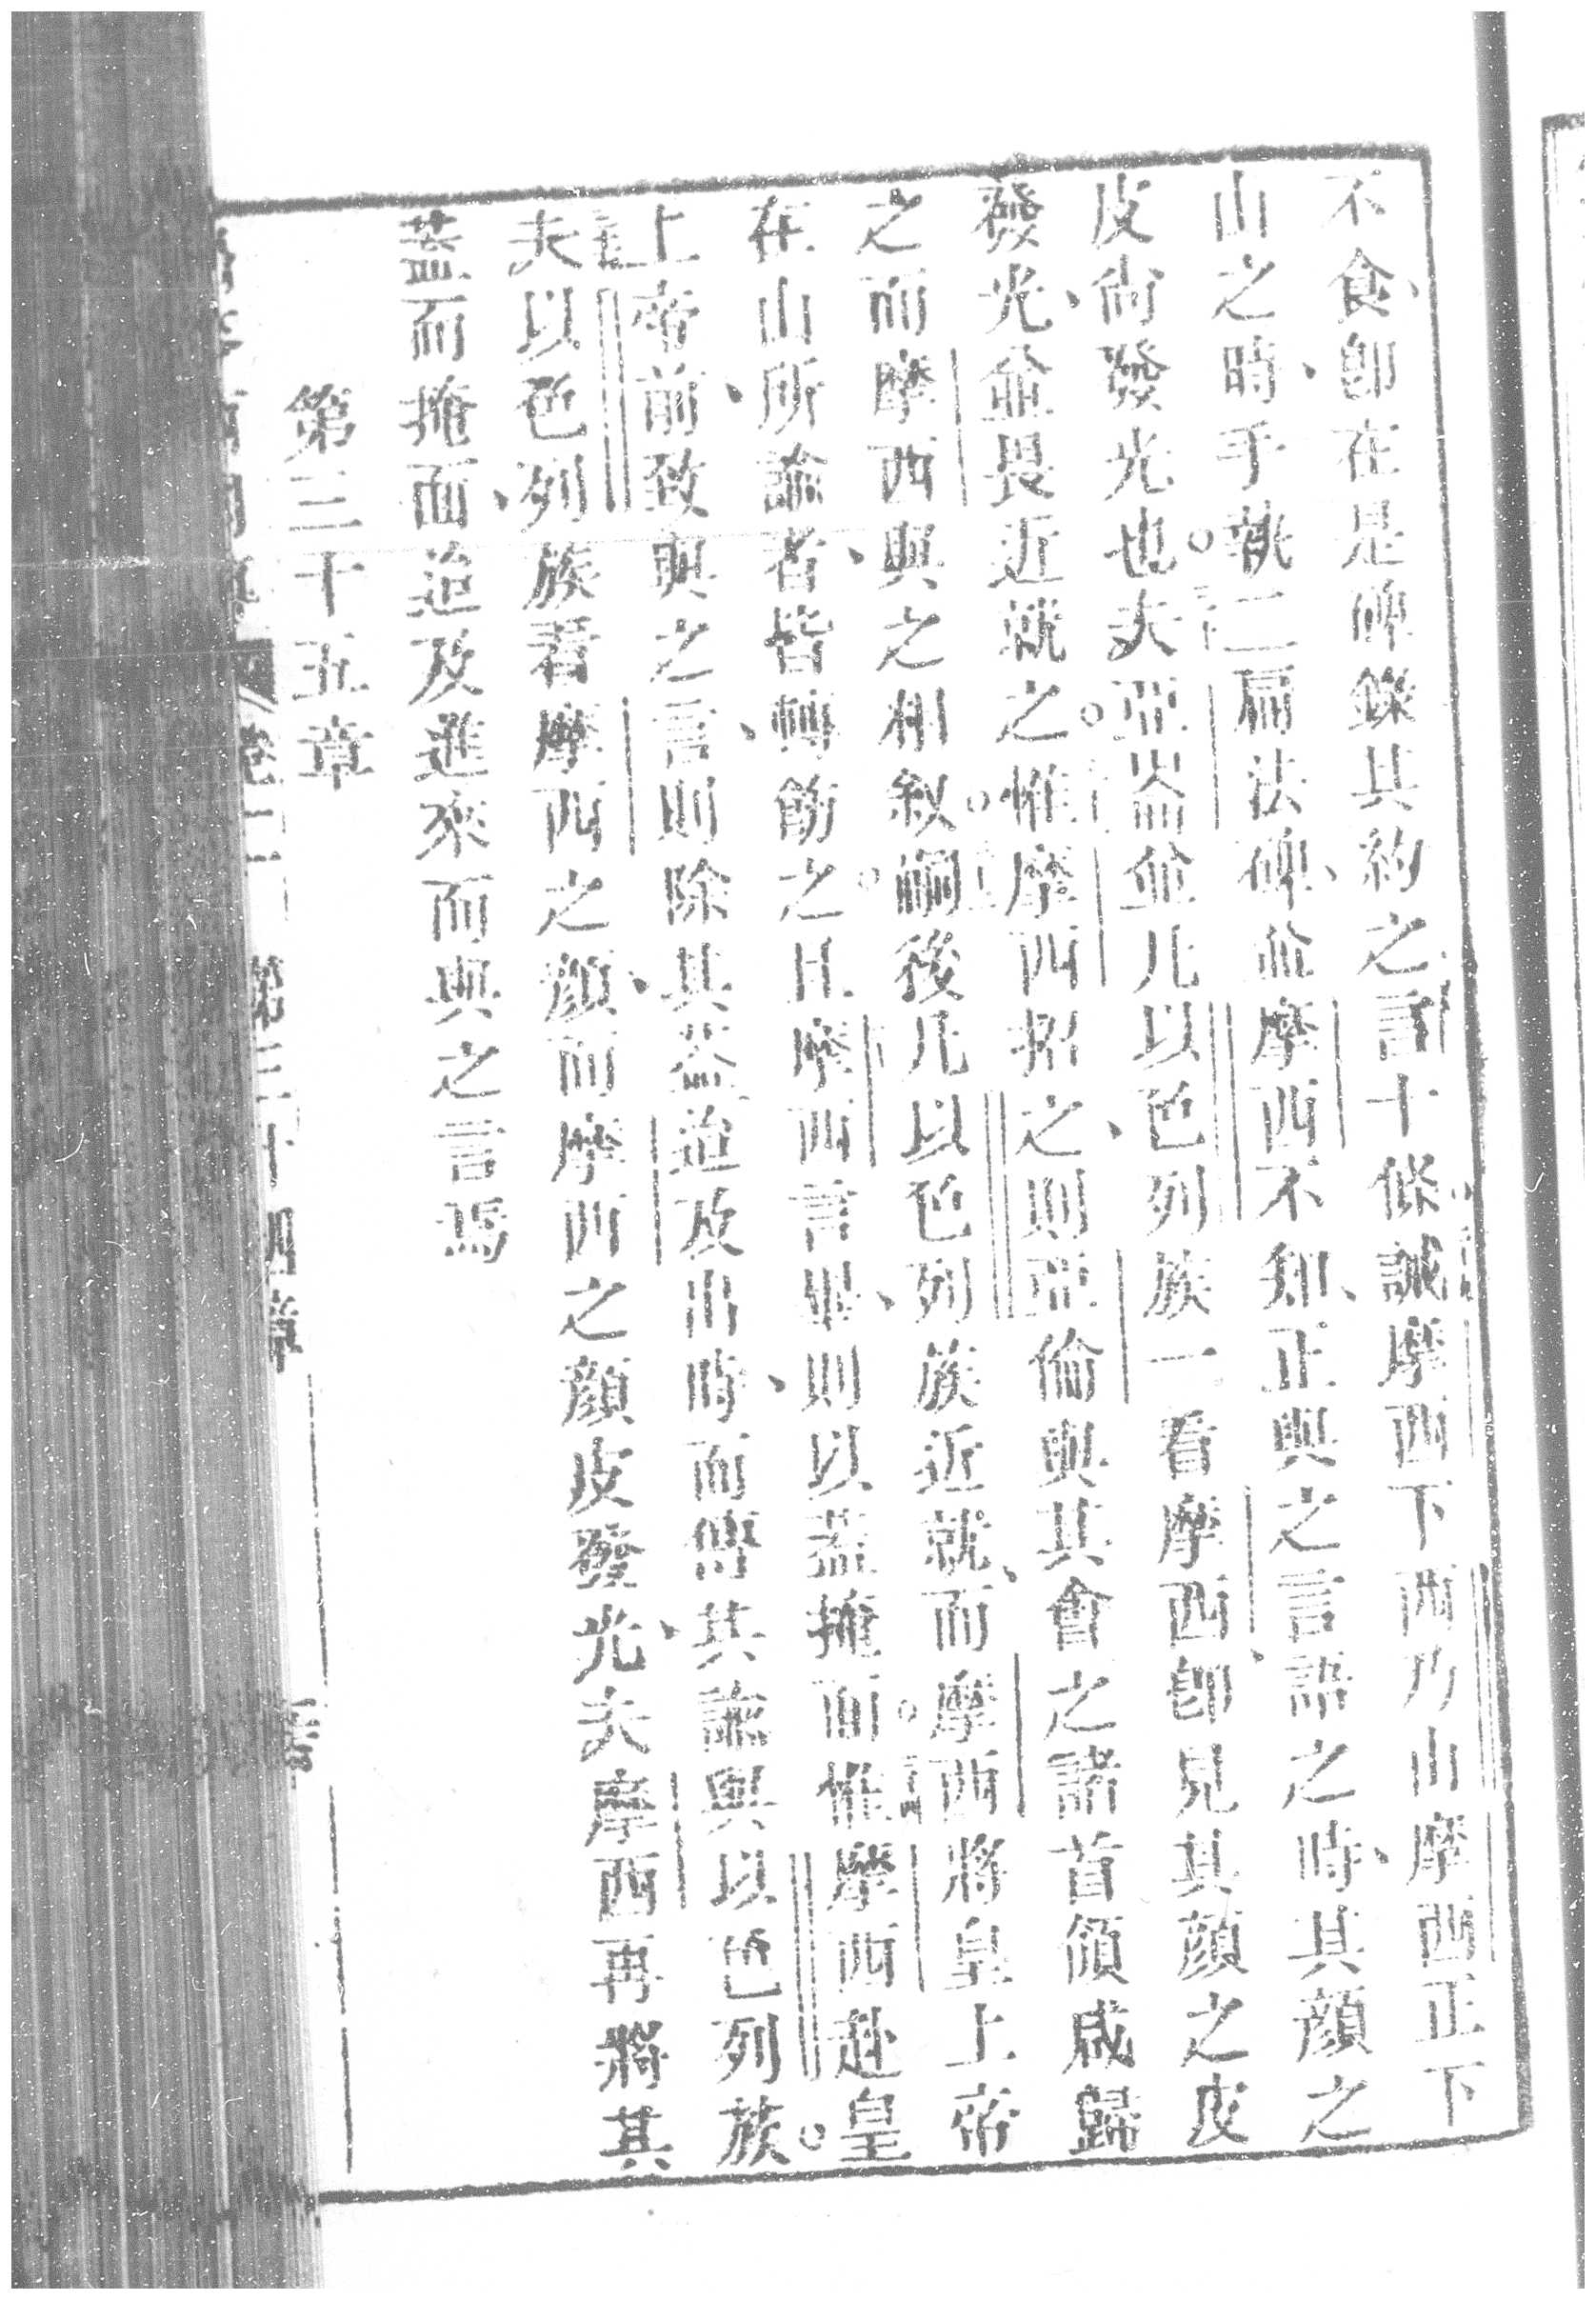 不食、卽在是碑錄其約之言十條誡摩西下西乃山摩西正下
山之時、手執二扁法碑、並摩西不知、正與之言語之時、其顏之
皮尚發光也。夫亞崙並凡以色列族一看摩西、卽見其顏之皮
發光、並畏近就之。惟摩西招之、則亞倫與其會之諸首領咸歸
之而摩西與之相叙。嗣後凡以色列族近就、而摩西將皇上帝
在山所諭者、皆轉飭之。且摩西言畢、則以蓋掩面。惟摩西赴皇
上帝前、致與之言、則除其蓋迨及出時、而傳其諭與以色列族。
夫以色列族看摩西之顏、而摩西之顏皮發光、夫摩西再將其
蓋而掩面、迨及進來而與之言焉
第三十五章
卷二 第三十四章